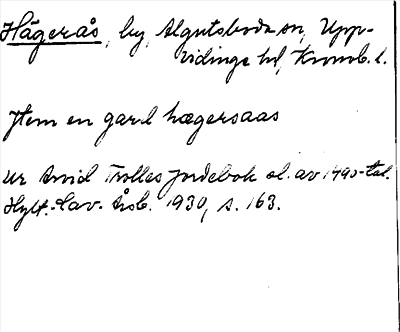 Hägerås, by, Algutsboda sn, Upp-
vidinge hd, Kronob. l.
Item en gard hægersaas
ur Arvid Trolles jordebok sl. av 1490-tal.
Hylt.-Cav. Årsb. 1930, s. 163.